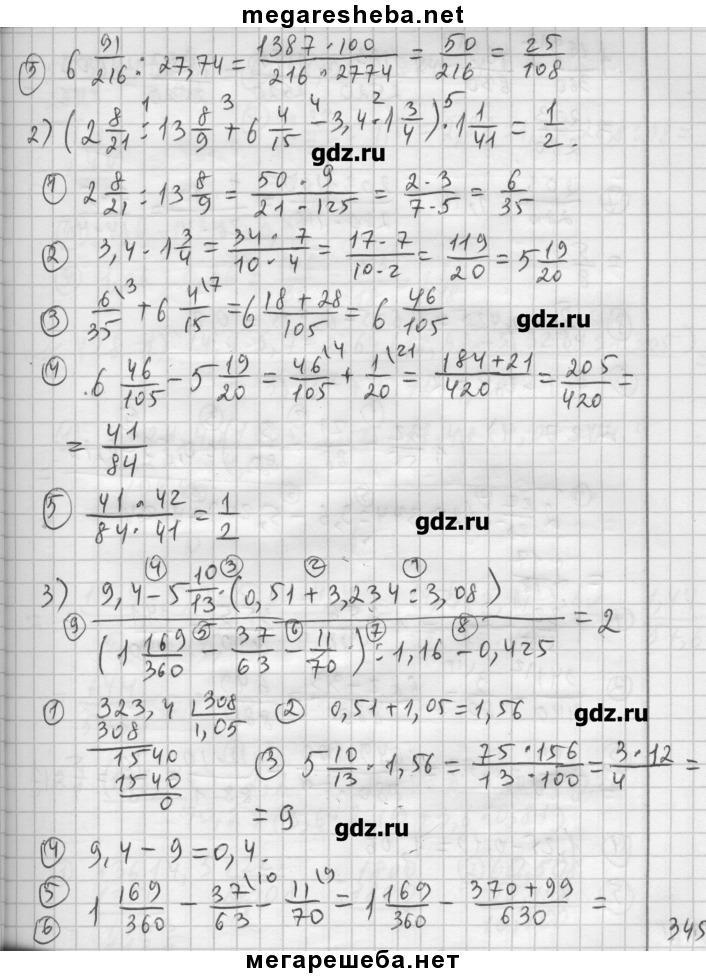 megaresheba.net
⑤ 6 91/216 : 27,74 = 1387·100/216·2774 = 50/216 = 25/108
2) (2 8/21 : 13 8/9 + 6 4/15 - 3,4·1 3/4)·1 1/41 = 1/2.
1 3 4 2 5
gdz.ru
① 2 8/21 : 13 8/9 = 50·9/21·125 = 2·3/7·5 = 6/35
② 3,4·1 3/4 = 34·7/10·4 = 17·7/10·2 = 119/20 = 5 19/20
③ 6/35 \3 + 6 4/15 \7 = 6 18+28/105 = 6 46/105
gdz.ru
④ 6 46/105 - 5 19/20 = 46/105 \4 + 1/20 \21 = 184+21/420 = 205/420 =
= 41/84
⑤ 41·42/84·41 = 1/2
gdz.ru
④ ③ ② ①
3) 9,4 - 5 10/13·(0,51 + 3,234 : 3,08)
⑨ ⑤ ⑥ ⑦ ⑧ = 2
(1 169/360 - 37/63 - 11/70) : 1,16 - 0,425
① 323,4 308 ② 0,51+1,05=1,56
308 1,05
gdz.ru
1540
1540
0
③ 5 10/13·1,56 = 75·156/13·100 = 3·12/4 =
= 9
gdz.ru
④ 9,4 - 9 = 0,4.
⑤ ⑥ 1 169/360 - 37/63 \10 - 11/70 \9 = 1 169/360 - 370+99/630 =
345
мегарешеба.нет